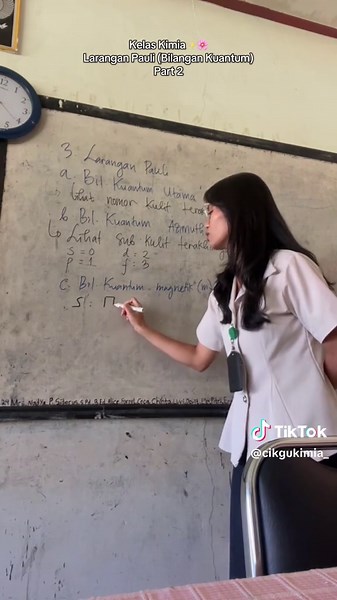 Kelas Kimia 🌸
Larangan Pauli (Bilangan Kuantum)
Part 2
3. Larangan Pauli
a. Bil. Kuantum Utama
Lihat nomor kulit
b. Bil. Kuantum
Lihat sub kulit
s = 0 d = 2
p = 1 f = 3
c. Bil. Kuantum magnetik (m)
S :
TikTok
@cikgukimia_